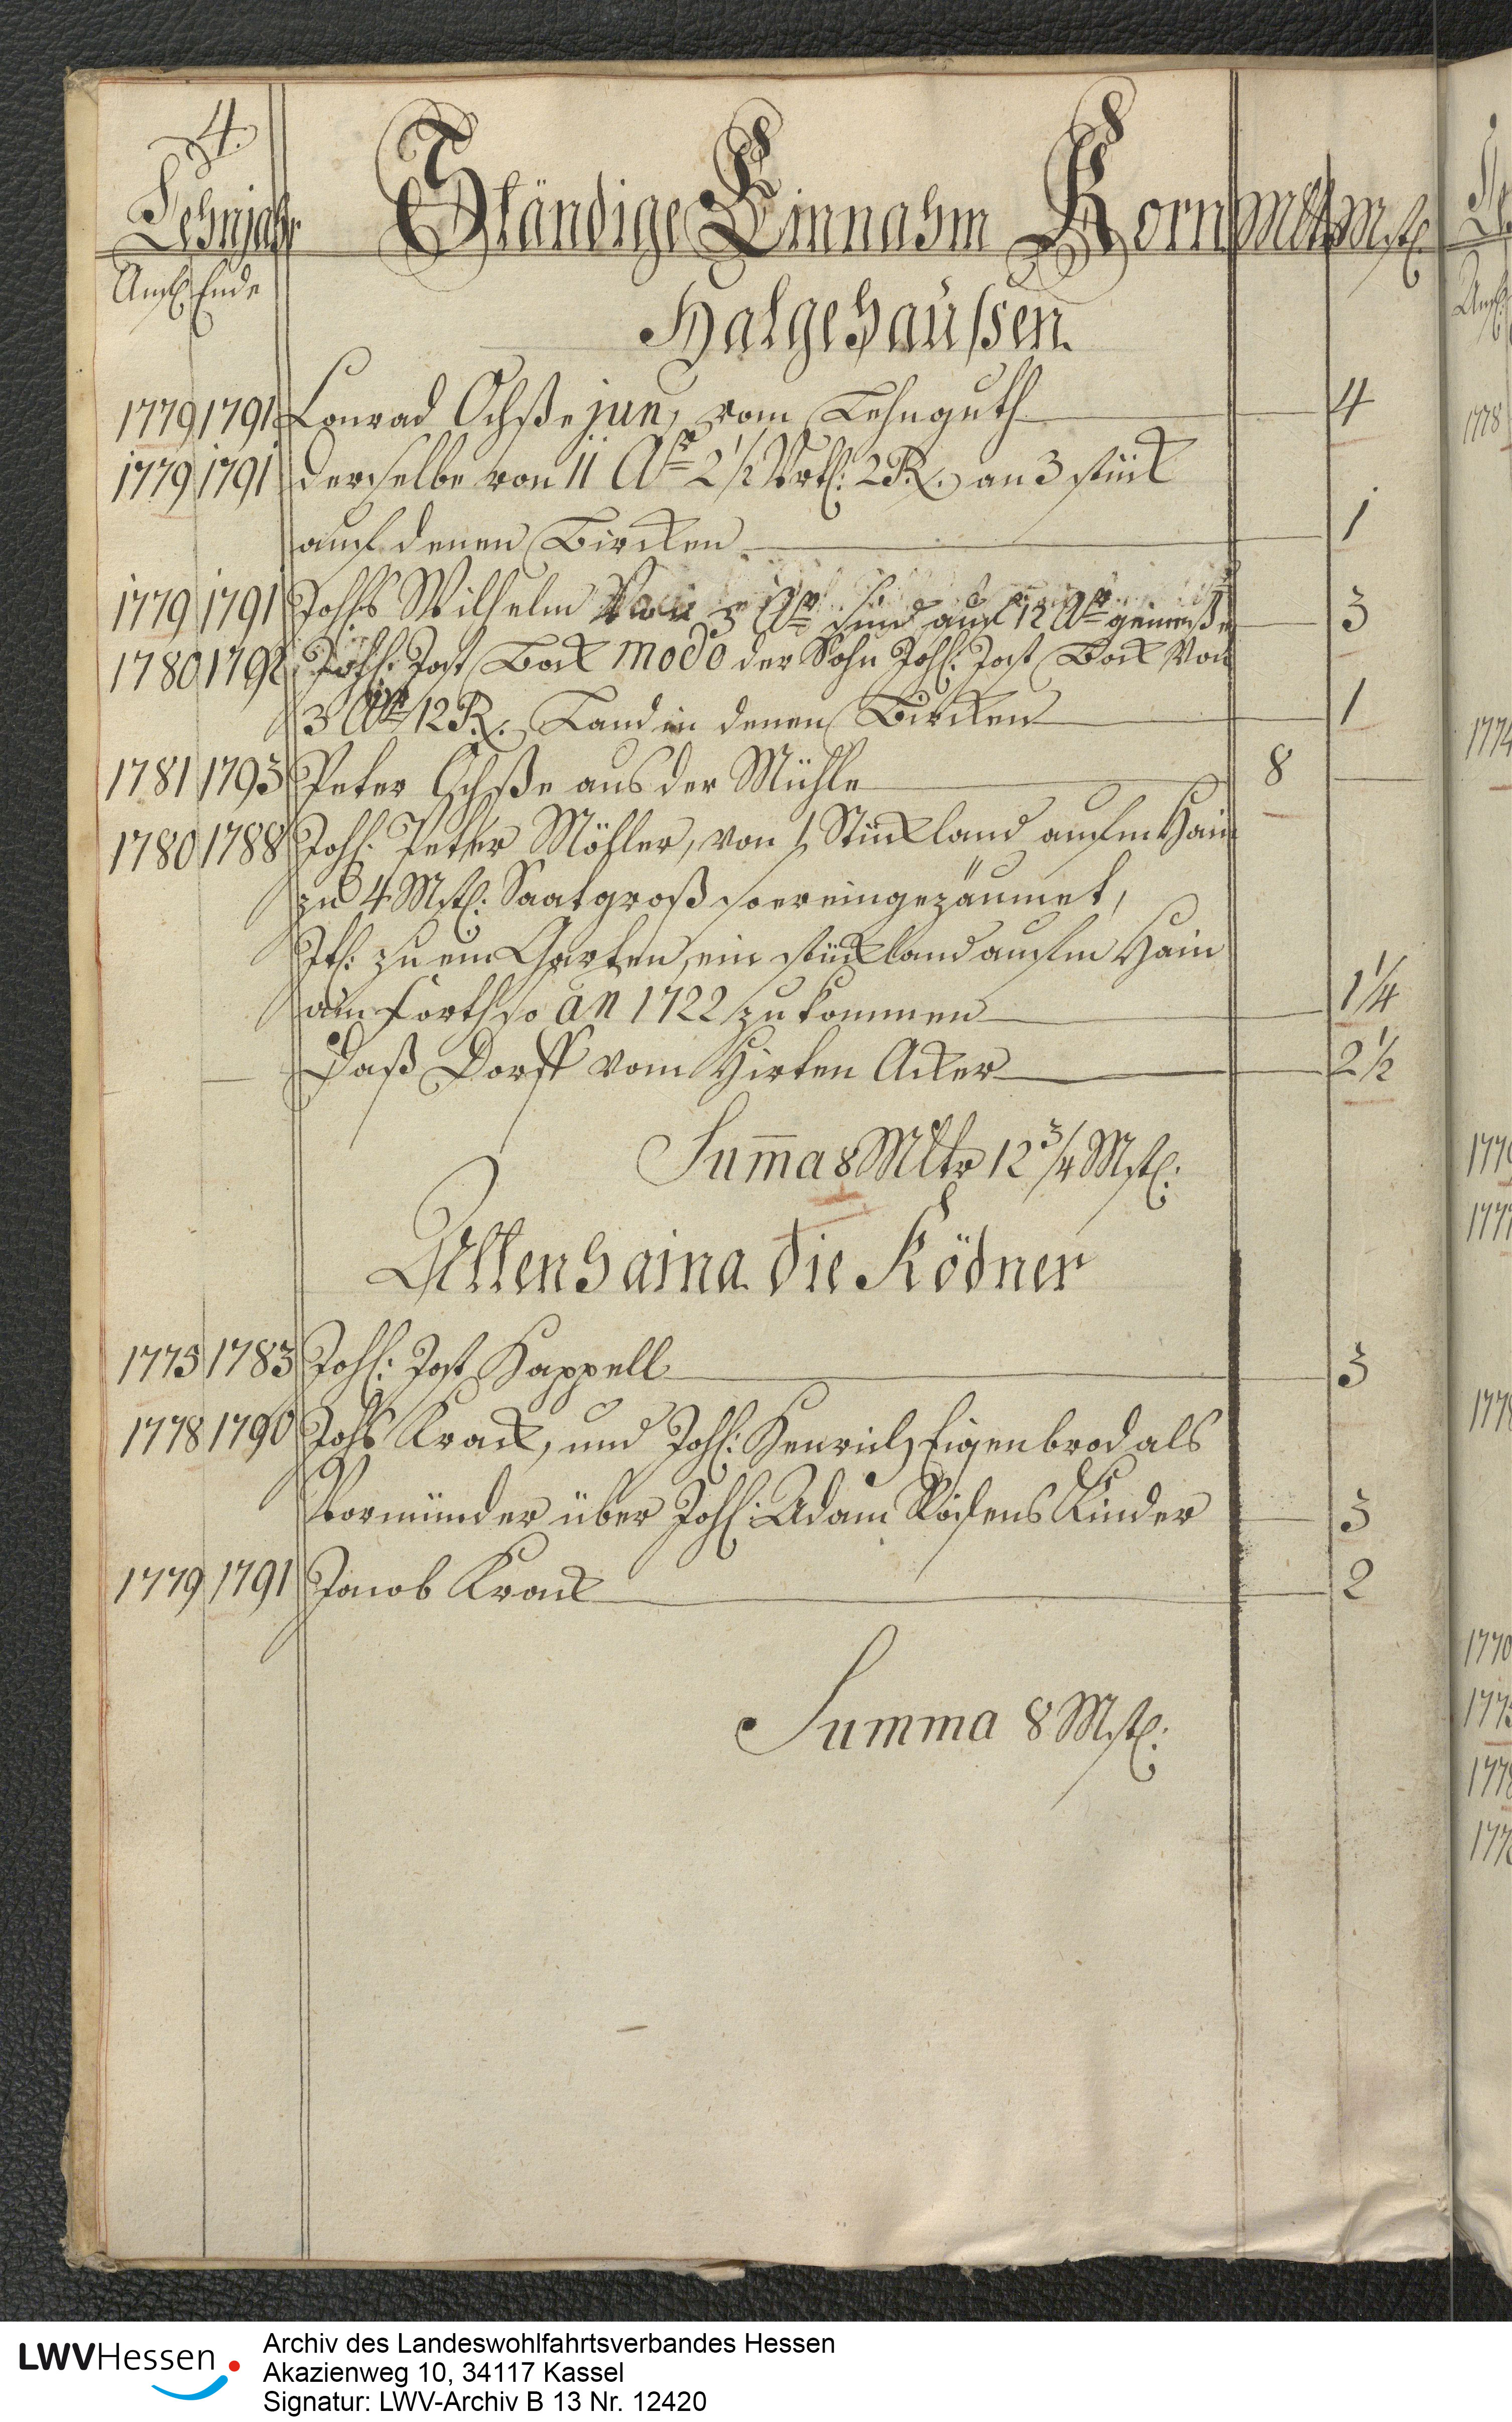 4.
Lehnjahr Ständige Einnahm Korn Mltr Mst:
Anf: Ende
Halgehaussen
1779 1791 Conrad Ochße jun, vom Lehnguth 4
1779 1791 derselbe von 11 Ar 2 1/2 Vrtl: 2 R. an 3 stück
auf denen Bircken 1
1779 1791 Johs Wilhelm Von 3 Ar sind auf 12 Ar gemeße 3
1780 1792 Joh: Jost Bock modo der Sohn Joh: Jost Bock Von
3 Ar 12 R. Land in denen Bircken 1
1781 1793 Peter Ochße aus der Mühle 8
1780 1788 Joh: Peter Möhler, von 1 Stück land aufm Hain
zu 4 Mst: Saat groß so er eingezäumet,
It: zu em Garten, ein stück land aufm Hain
am forth so an 1722 zu kommen 1 1/4
Daß Dorff vom Hirten Acker 2 1/2
Suma 8 Mltr 12 3/4 Mst:
Altenhaina die Ködner
1775 1783 Joh: Jost Happell 3
1778 1790 Johs Krack, und Joh: Henrich Eigenbrod als
Vormünder über Joh: Adam Kinder 3
1779 1791 Jacob Krack 2
Summa 8 Mst:
1778
1774
1770
LWVHessen
Archiv des Landeswohlfahrtsverbandes Hessen
Akazienweg 10, 34117 Kassel
Signatur: LWV-Archiv B 13 Nr. 12420